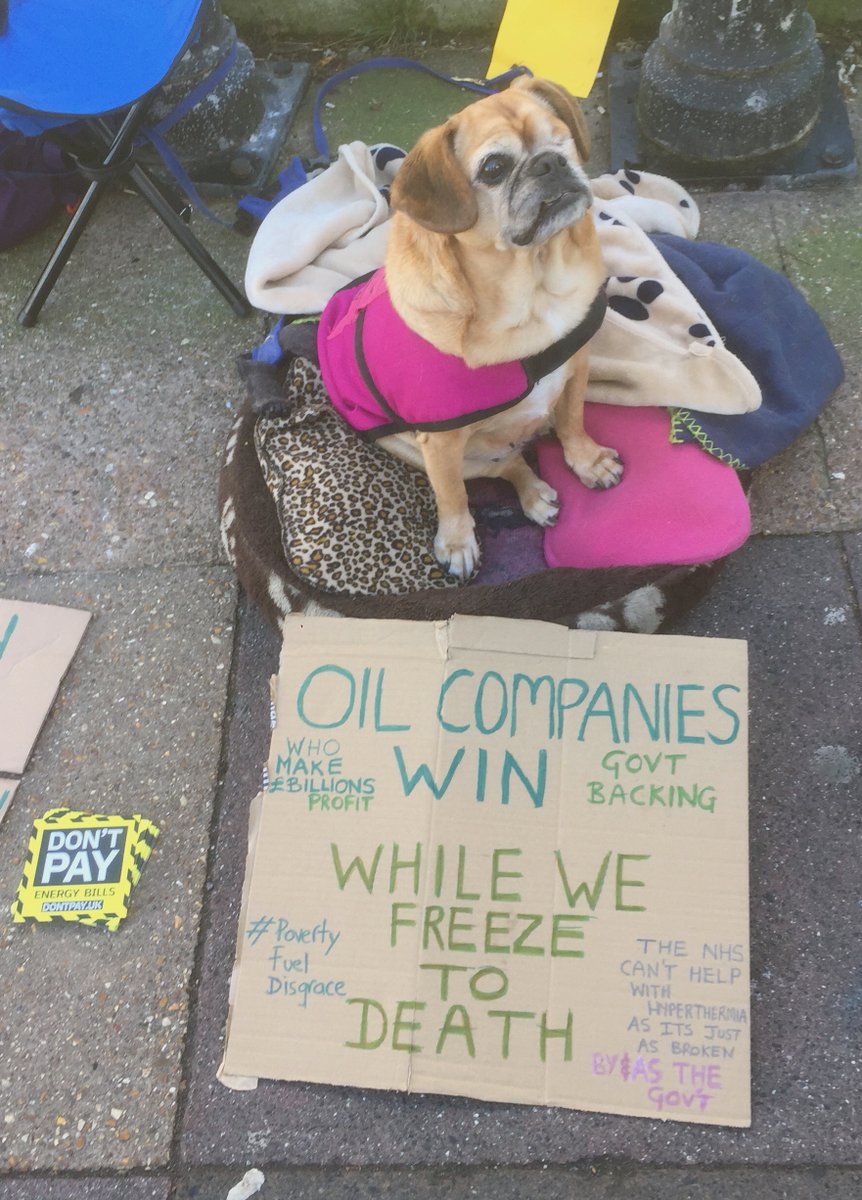 OIL COMPANIES
WHO
MAKE
£BILLIONS
PROFIT
WIN
GOVT
BACKING
WHILE WE
FREEZE
TO
DEATH
#Poverty
Fuel
Disgrace
THE NHS
CAN'T HELP
WITH
HYPERTHERMIA
AS ITS JUST
AS BROKEN
BY & AS THE
GOVT
DON'T
PAY
ENERGY BILLS
DONTPAY.UK